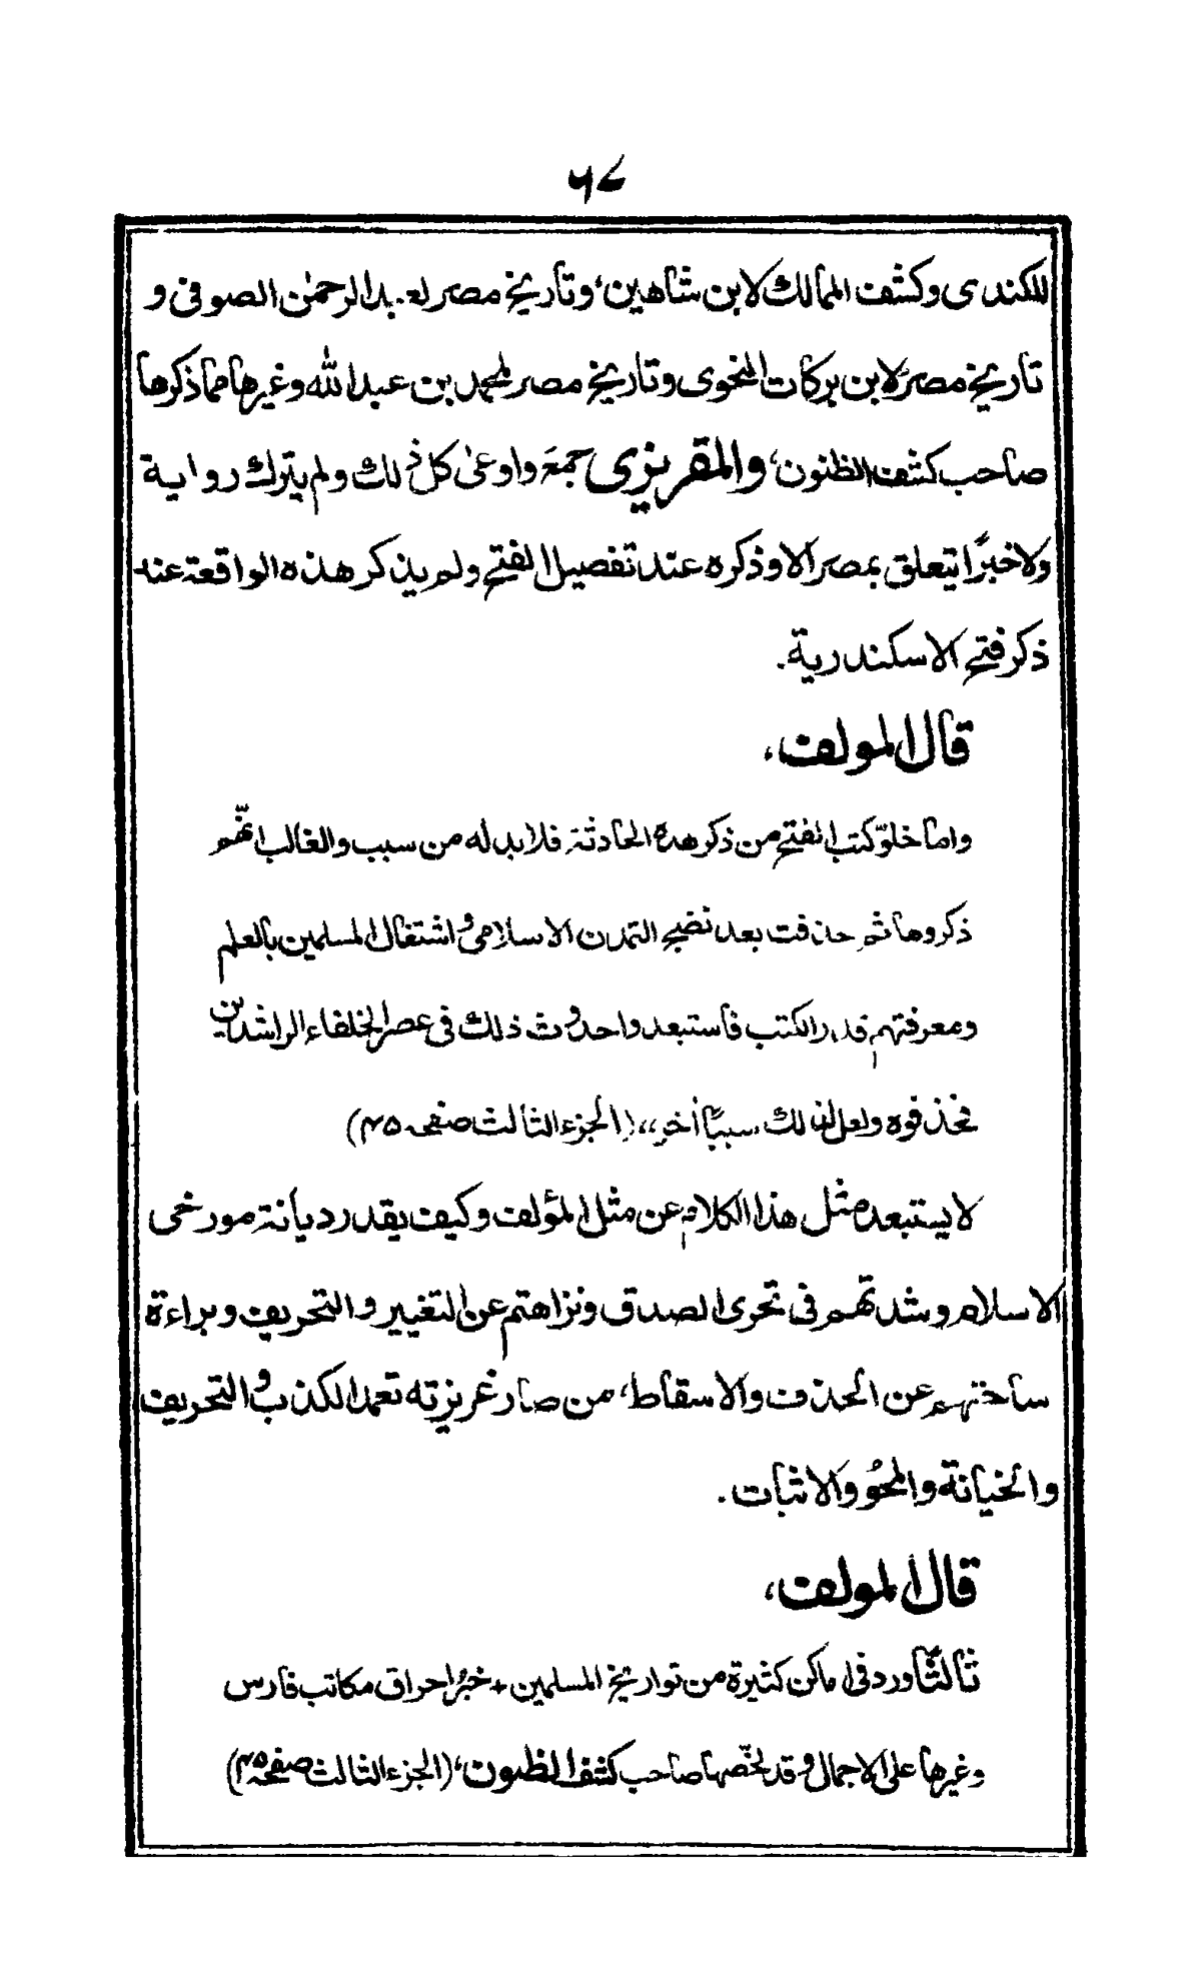 ٦٧
للكندى وكشف الممالك لابن شاهين، وتأريخ مصر لعبد الرحمٰن الصوفى و
تاريخ مصر لابن بركات النحوى وتاريخ مصر لمحمد بن عبد الله وغيرها مما ذكرها
صاحب كشف الظنون، والمقريزى جمعَ واوعىٰ كل ذٰلك ولم يترك رواية
ولا خبرًا يتعلق بمصر الا وذكره عند تفصيل الفتح ولم يذكر هذه الواقعة عند
ذكر فتح الاسكندرية.
قال المولف،
واما خلوّ كتب الفتح من ذكر هذه الحادثة فلا بد له من سبب والغالب انهّم
ذكروها ثم حذفت بعد نضج التمدن الاسلامى و اشتغال المسلمين بالعلم
ومعرفتهم قدر الكتب فأستبعدوا حدوث ذلك فى عصر الخلفاء الراشدين
فحذفوه ولعل لذلك سببًا أخر،، (الجزء الثالث صفحه ٤٥)
لا يستبعد مثل هذا الكلام عن مثل المؤلف وكيف يقدر ديأنة مورخى
الاسلام وشدتهم فى تحرى الصدق ونزاهتهم عن التغيير والتحريف وبراءة
ساحتهم عن الحذف والاسقاط، من صار غريزته تعمد الكذب والتحريف
والخيانة والمحُو والاثبات.
قال المولف،
ثالثًا ورد فى اماكن كثيرة من تواريخ المسلمين + خبرُ احراق مكاتب فارس
وغيرها على الاجمال وقد لخّصها صاحب كشف الظنون، (الجزء الثالث صفحه ٤٥)